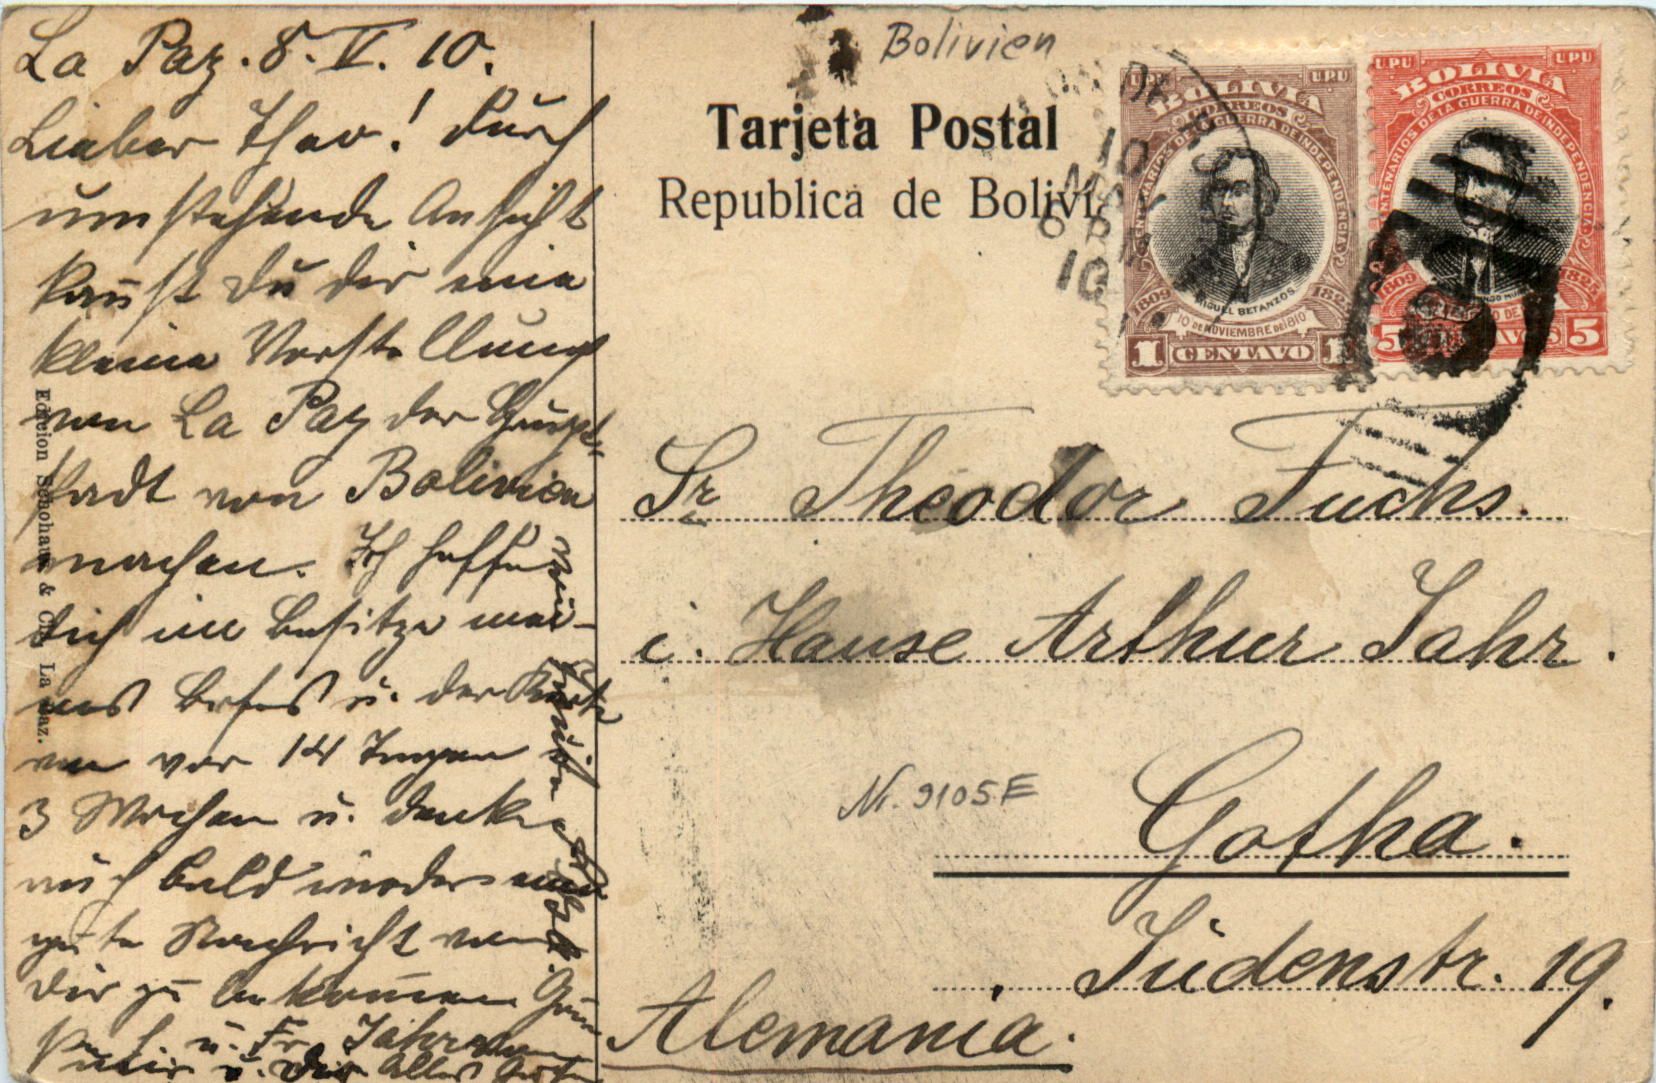 La Paz. 8. V. 10.
Lieber Theo! Durch
umstehende Ansicht
kannst Du dir eine
kleine Vorstellung
von La Paz der Haupt-
stadt von Bolivien
machen. Ich hoffe
dich im Besitze mei-
nes Briefes u. der Karte
von vor 14 Tagen
3 Wochen u. denke
auch bald wieder eine
gute Nachricht von
dir zu bekommen
u. Fr. Jahr
u. dir alles
Edicion Schohaus & Cia, La Paz.
Bolivien
Tarjeta Postal
Republica de Bolivia
10
MAY
6 P M
10
UPU UPU
BOLIVIA
CORREOS
CENTENARIOS DE LA GUERRA DE INDEPENDENCIA
MIGUEL BETANZOS
1809 1825
10 DE NOVIEMBRE DE 1810
1 CENTAVO 1
UPU UPU
BOLIVIA
CORREOS
CENTENARIOS DE LA GUERRA DE INDEPENDENCIA
1809 1825
5 CENTAVOS 5
Sr. Theodor Fuchs.
i. Hause Arthur Jahr.
Nr. 9105E
Gotha.
Jüdenstr. 19.
Alemania.